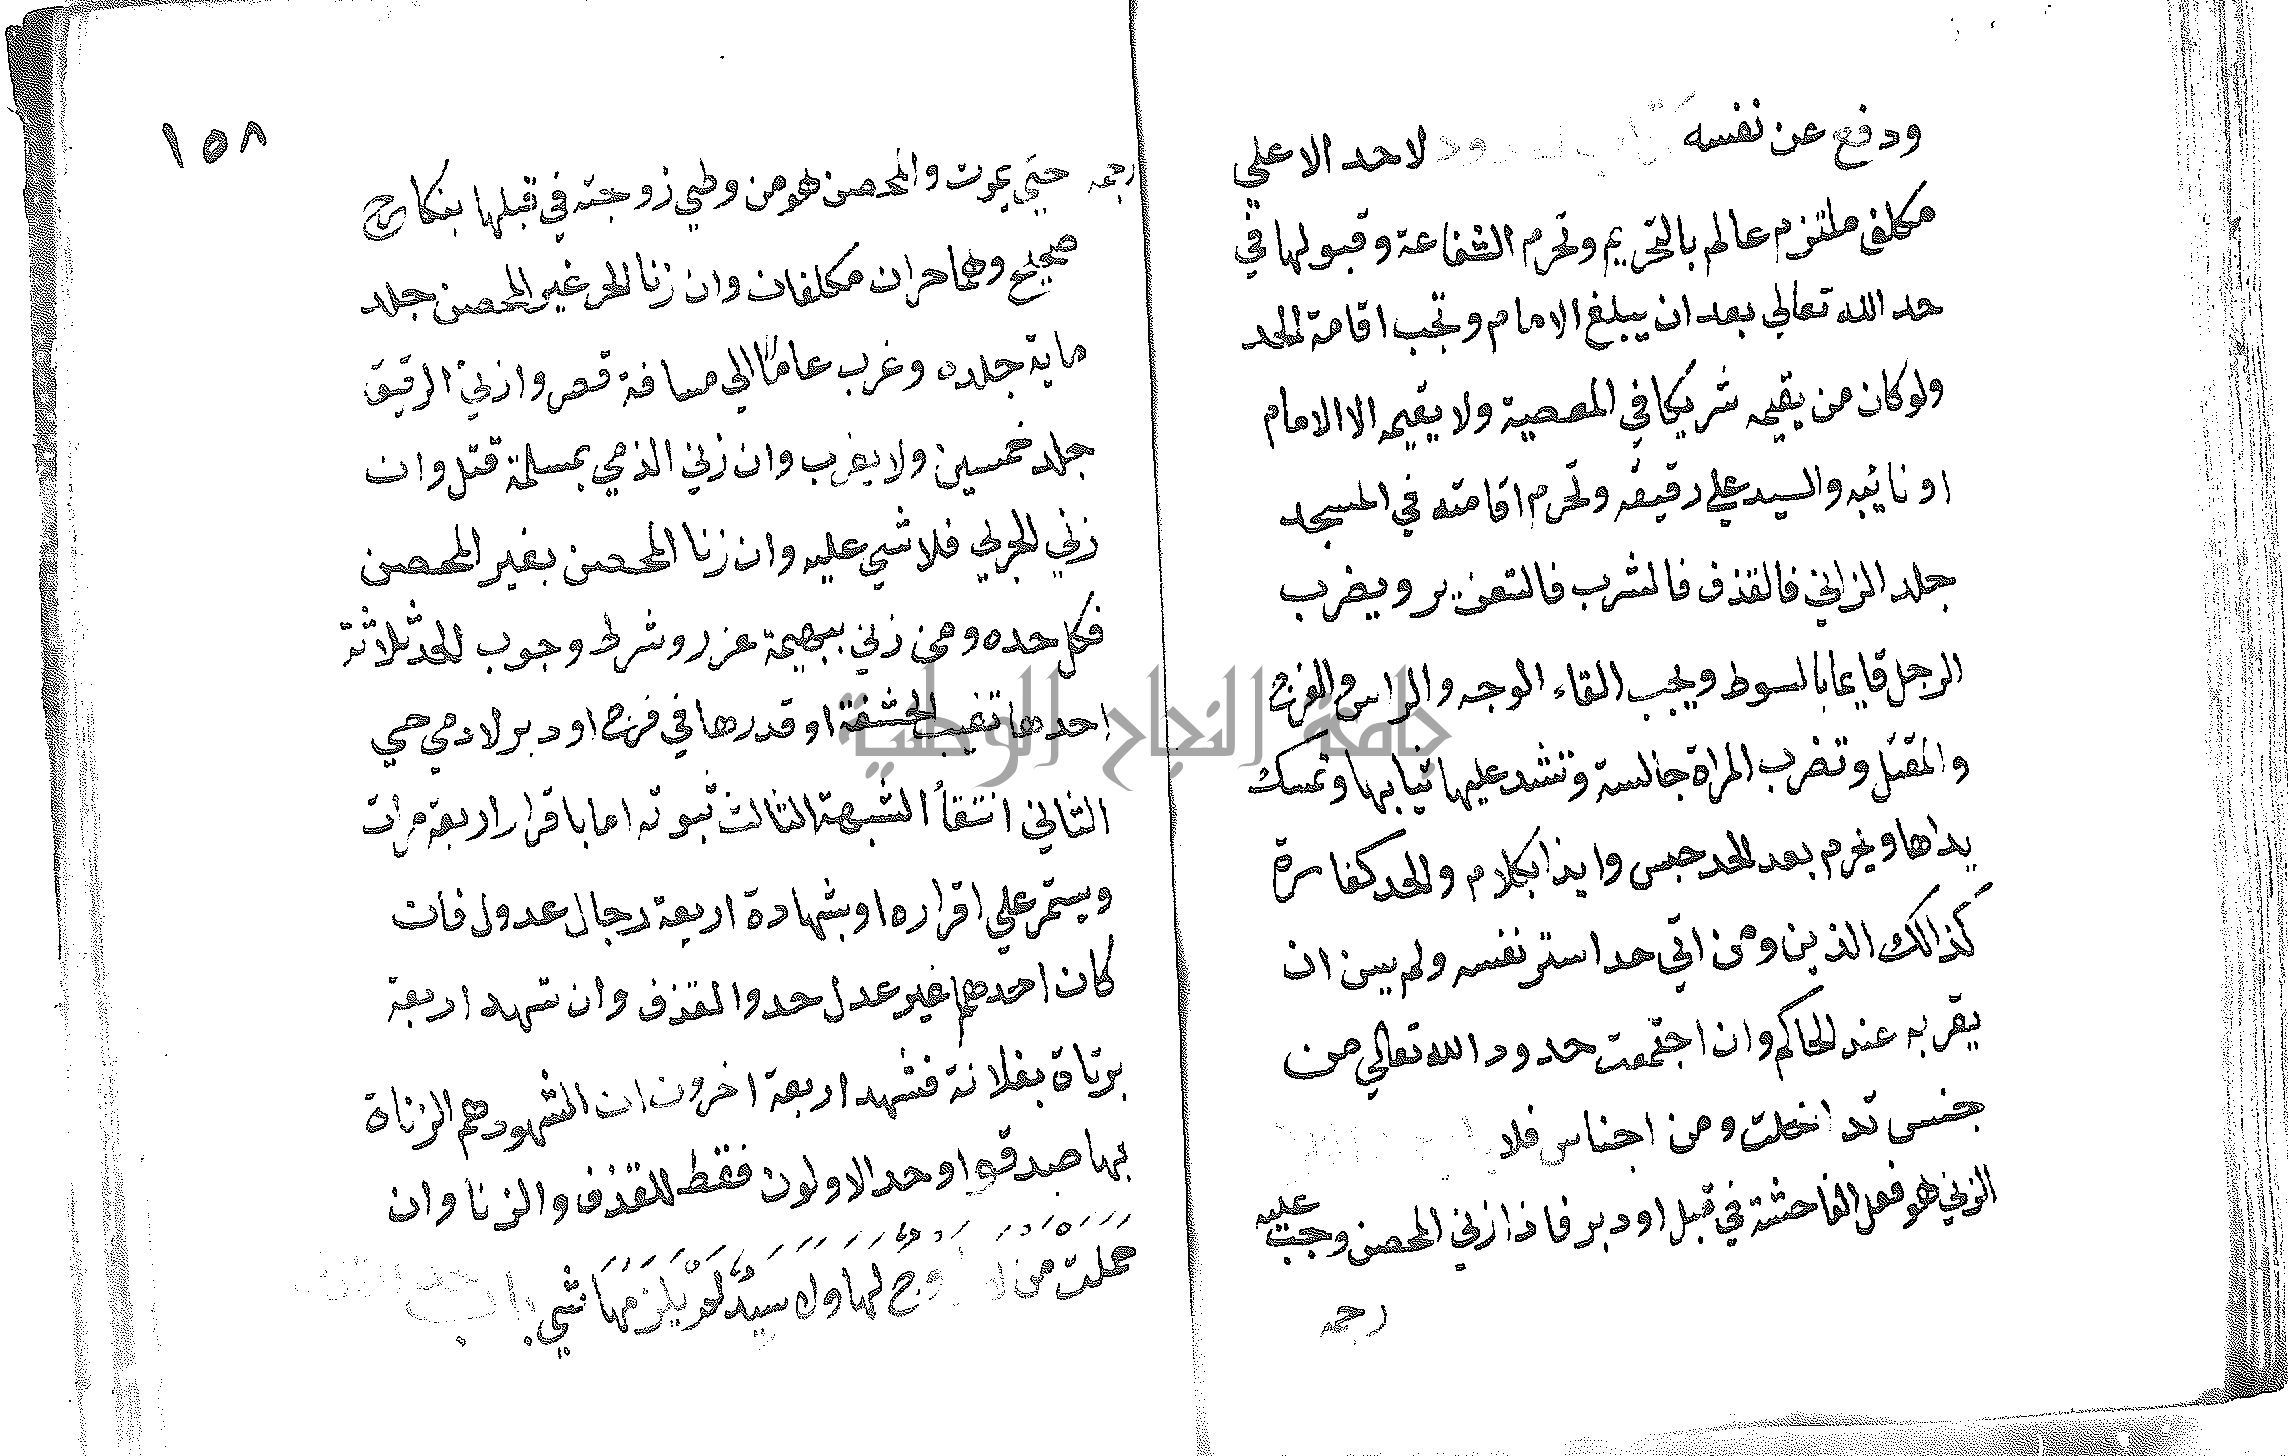 ودفع عن نفسه لا حد الا علي
مكلف ملتزم عالم بالتحريم وتحرم الشفاعة وقبولها في
حد الله تعالي بعد ان يبلغ الامام وتجب اقامة الحد
ولو كان من يقيمه شريكا في المعصية ولا يقيمه الا الامام
او نائبه والسيد علي رقيقه وتحرم اقامته في المسجد
جلد الزاني فالقذف فالشرب فالتعزير ويضرب
الرجل قايما بالسوط ويجب القاء الوجه والراس والفرج
والمقتل وتضرب المراة جالسة وتشد عليها ثيابها وتمسك
يداها ويحرم بعد الحد حبس وايذا بكلام والحد كفارة
كذالك الذين ومن اتي حدا ستر نفسه ولم يسن ان
يقر به عند الحاكم وان اجتمعت حدود الله تعالي من
جنس تداخلت ومن اجناس فلا
الزني هو فعل الفاحشة في قبل او دبر فاذا زني المحصن وجب عليه
رجمه
١٥٨
رجمه حتي يموت والمحصن هو من وطي زوجته في قبلها بنكاح
صحيح وهما حران مكلفان وان زنا الحر غير المحصن جلد
ماية جلده وغرب عاما الي مسافة قصر وان زني الرقيق
جلد خمسين ولا يغرب وان زني الذمي بمسلمة قتل وان
زني الحربي فلا شي عليه وان زنا المحصن بغير المحصن
فكل حده ومن زني ببهيمة عزر وشرط وجوب الحد ثلاثة
احدها تغيب الحشفة او قدرها في فرج او دبر لادمي حي
الثاني انتفأ الشبهة الثالث ثبوته اما باقرار اربعة مرات
ويستمر علي اقراره او بشهادة اربعة رجال عدول فان
كان احدهم غير عدل حدوا للقذف وان شهد اربعة
بزناة بفلانة فشهد اربعة اخرون ان الشهود هم الزناة
بها صدقوا وحد الاولون فقط للقذف والزنا وان
حملت من لا زوج لها ولا سيد لم يلزمها شي باب حد القذف
جامعة النجاح الوطنية